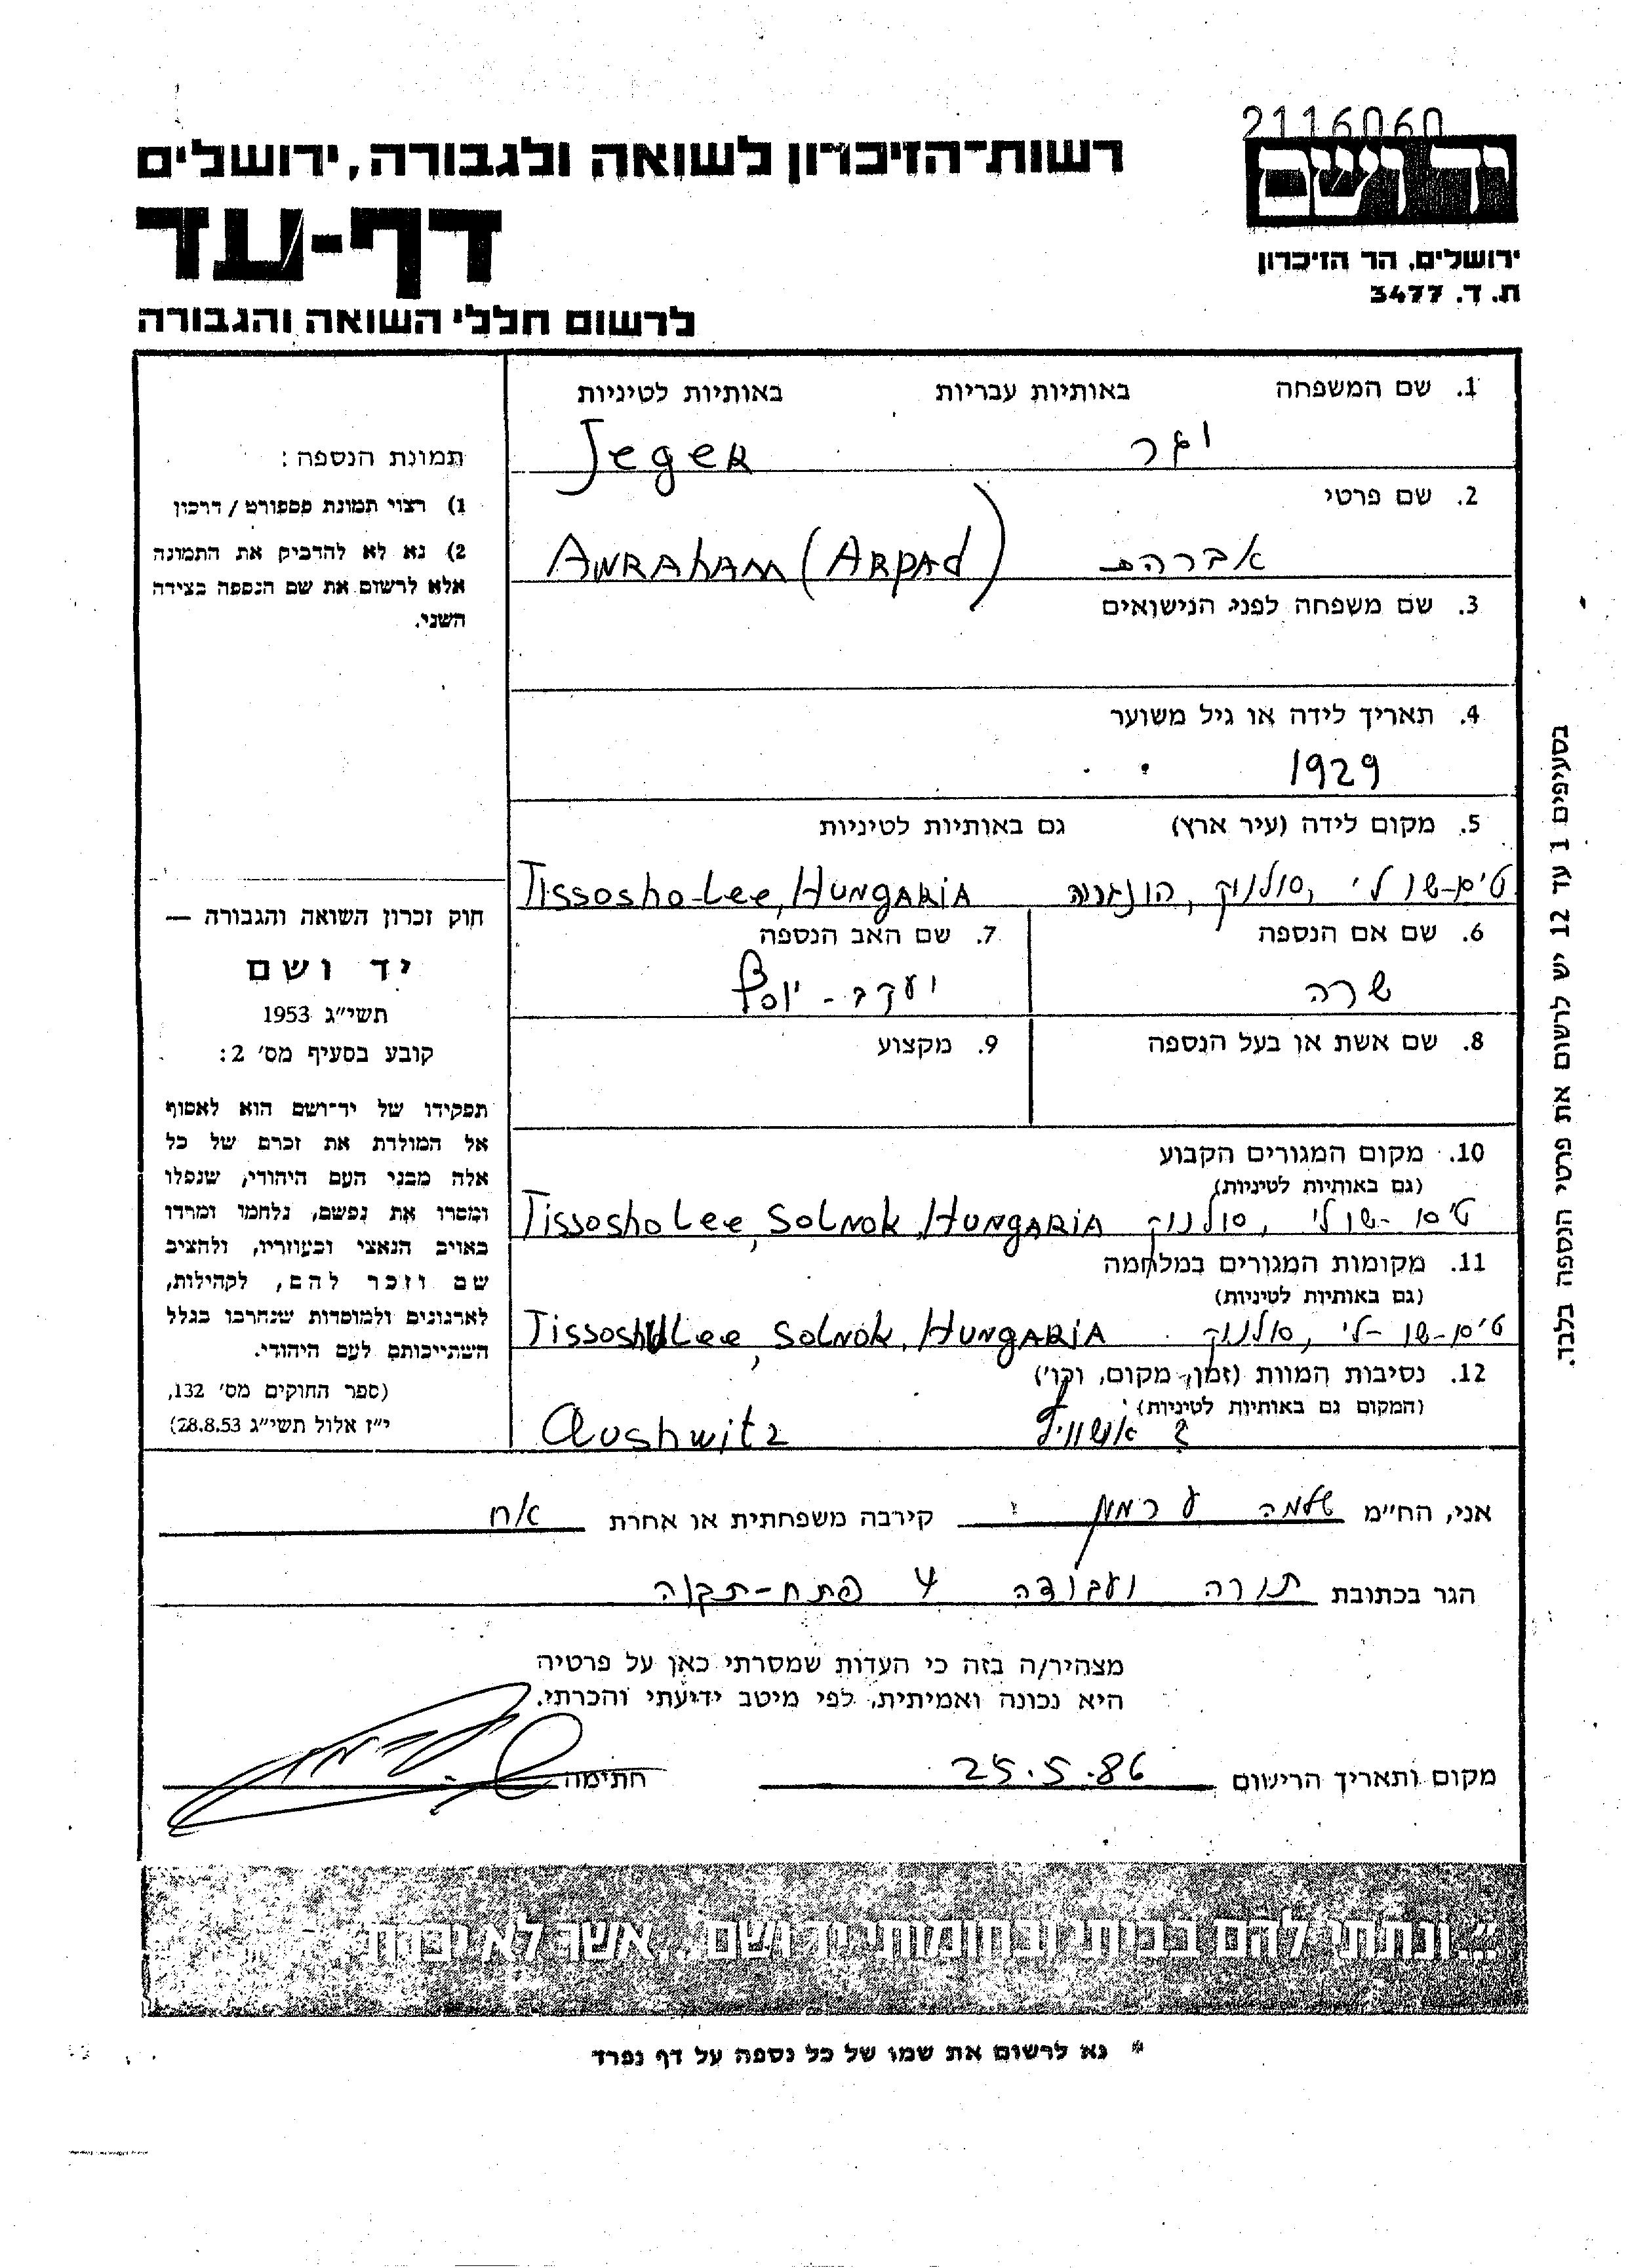 2116060
יד ושם
רשות־הזיכרון לשואה ולגבורה, ירושלים
דף-עד
ירושלים, הר הזיכרון
ת. ד. 3477
לרשום חללי השואה והגבורה
1. שם המשפחה באותיות עבריות באותיות לטיניות
יגר Jeger
2. שם פרטי
אברהם Awraham (Arpad)
3. שם משפחה לפני הנישואים
4. תאריך לידה או גיל משוער
1929
5. מקום לידה (עיר ארץ) גם באותיות לטיניות
טיס-שולי, סולנוק, הונגריה Tissosho-Lee, Hungaria
6. שם אם הנספה
שרה
7. שם האב הנספה
יעקב - יוסף
8. שם אשת או בעל הנספה
9. מקצוע
10. מקום המגורים הקבוע
(גם באותיות לטיניות)
טיסו-שולי, סולנוק Tissosho Lee, Solnok, Hungaria
11. מקומות המגורים במלחמה
(גם באותיות לטיניות)
טיס-שו-לי, סולנוק Tissoshulee, Solnok, Hungaria
12. נסיבות המוות (זמן, מקום, וכו')
(המקום גם באותיות לטיניות)
באושוויץ Aushwitz
תמונת הנספה:
1) רצוי תמונת פספורט / דרכון
2) נא לא להדביק את התמונה
אלא לרשום את שם הנספה בצידה
השני.
חוק זכרון השואה והגבורה —
יד ושם
תשי"ג 1953
קובע בסעיף מס' 2:
תפקידו של יד־ושם הוא לאסוף
אל המולדת את זכרם של כל
אלה מבני העם היהודי, שנפלו
ומסרו את נפשם, נלחמו ומרדו
באויב הנאצי ובעוזריו, ולהציב
שם וזכר להם, לקהילות,
לארגונים ולמוסדות שנחרבו בגלל
השתייכותם לעם היהודי.
(ספר החוקים מס' 132,
י"ז אלול תשי"ג 28.8.53)
בסעיפים 1 עד 12 יש לרשום את פרטי הנספה בלבד.
אני, הח"מ שלמה ערמון קירבה משפחתית או אחרת אח
הגר בכתובת תורה ועבודה 4 פתח-תקוה
מצהיר/ה בזה כי העדות שמסרתי כאן על פרטיה
היא נכונה ואמיתית, לפי מיטב ידיעתי והכרתי.
מקום ותאריך הרישום 25.5.86 חתימה
"...ונתתי להם בביתי ובחומותי יד ושם... אשר לא יכרת"
* נא לרשום את שמו של כל נספה על דף נפרד